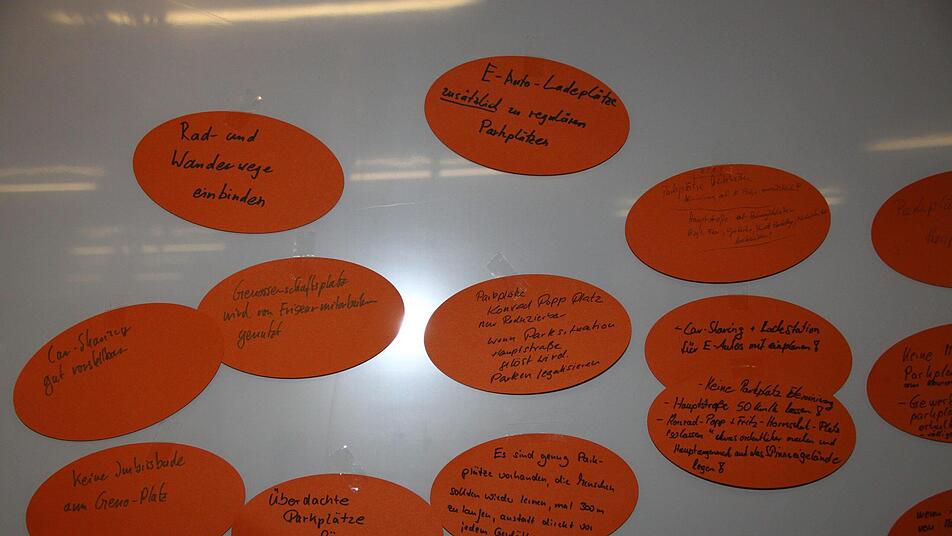 E-Auto-Ladeplätze
zusätzlich zu regulären
Parkplätzen
Rad- und
Wanderwege
einbinden
Parkplätze
Hauptstraße
Genossenschaftsplatz
wird von Friseurmitarbeitern
genutzt
Parkplätze
Konrad Popp Platz
nur Reduzierbar
wenn Parksituation
Hauptstraße
gelöst wird.
Parken legalisieren
- Car-Sharing + Ladestation
für E-Autos mit einplanen!
Car-Sharing
gut vorstellbar
- Keine Parkplatz Eliminierung
- Hauptstraße 50 km/h lassen!
- Konrad-Popp + Fritz-Hornschuh-Platz
"so lassen" etwas ordentlicher machen und
Hauptaugenmerk auf das Spinnereigelände
legen!
Keine
Parkpla
- Gewer
parkpl
Keine Imbissbude
am Geno-Platz
Überdachte
Parkplätze
Es sind genug Park-
plätze vorhanden, die Menschen
sollten wieder lernen, mal 300m
zu laufen, anstatt direkt vor
jedem
wenn
von